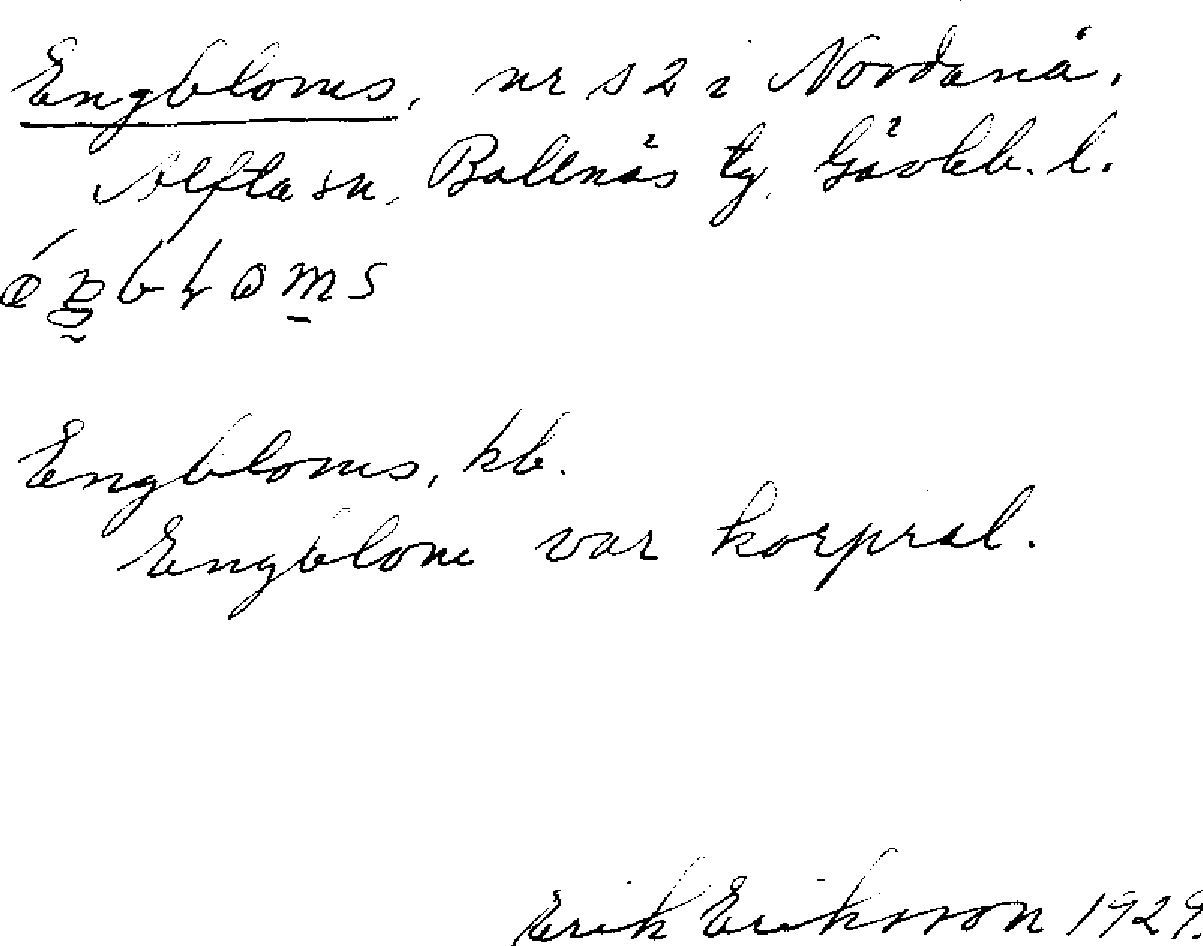 Engbloms, nr s 2 i Nordanå,
Alfta sn, Bollnäs tg, Gävleb. l.
Engbloms, kb.
Engblom var korpral.
Erik Eriksson 1929.